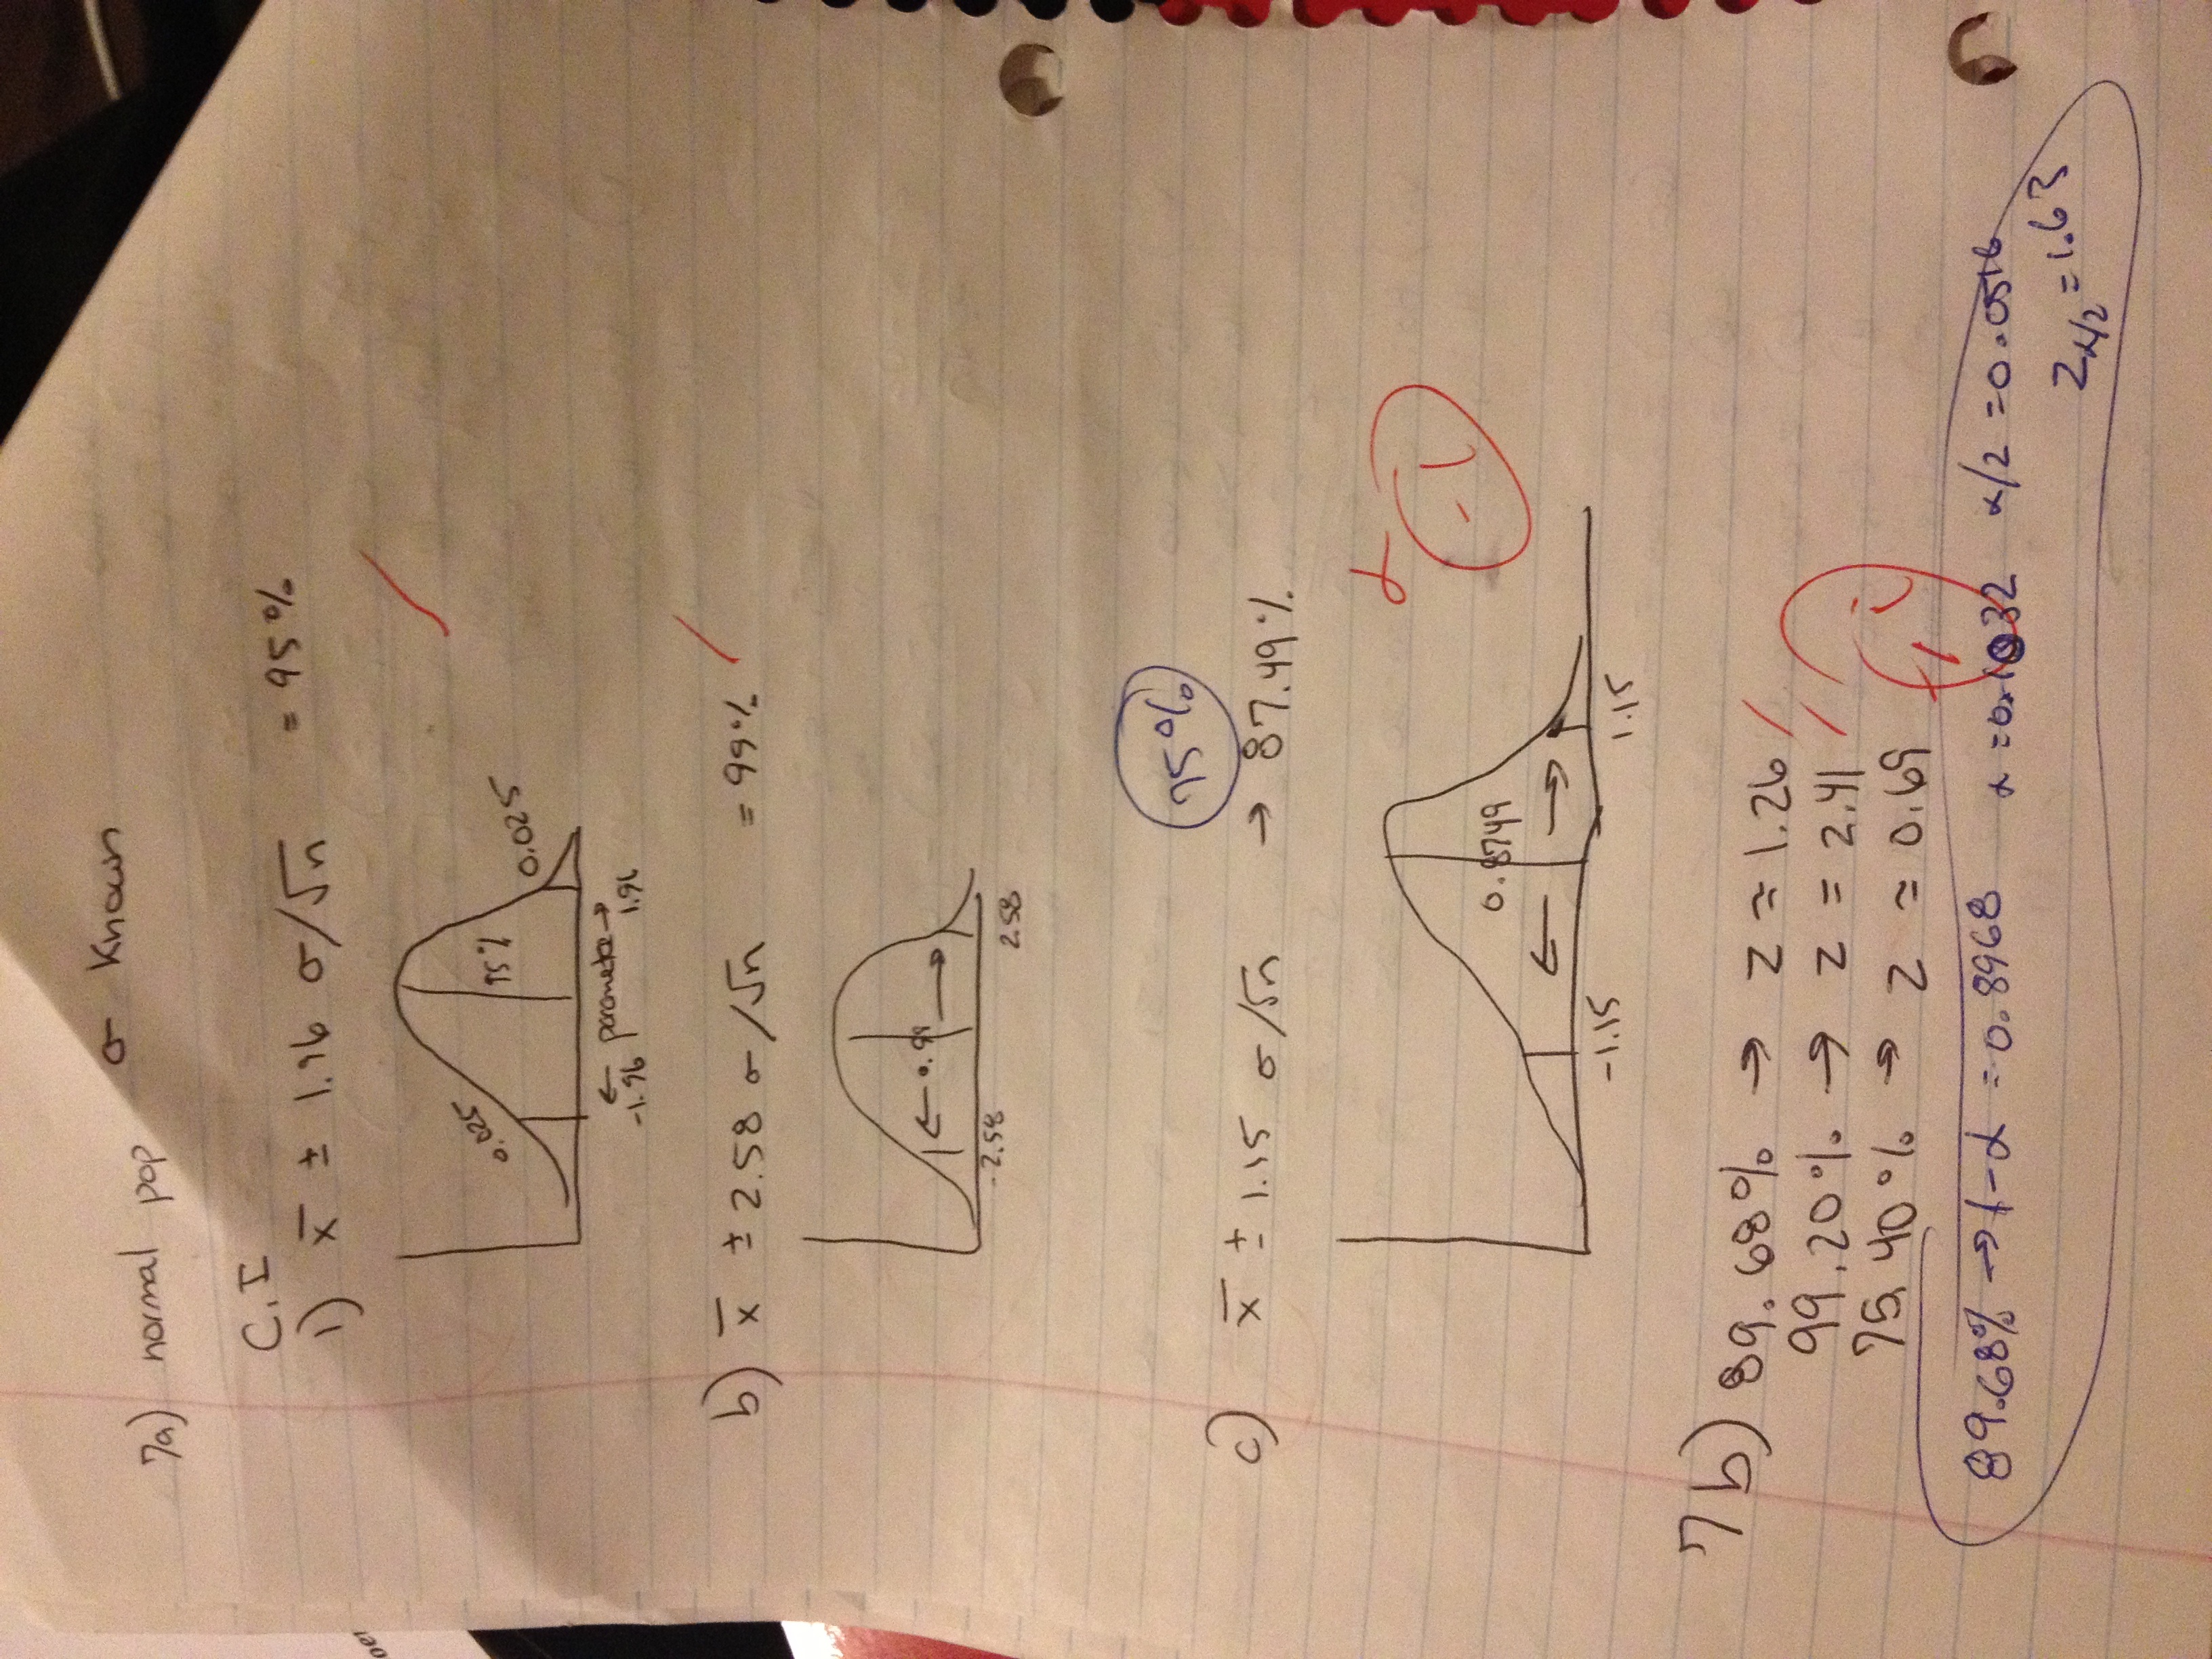 7a) normal pop σ known
C.I
1) x̄ ± 1.96 σ/√n = 95%
0.025 95% 0.025
-1.96 ← parameter → 1.96
b) x̄ ± 2.58 σ/√n = 99%
← 0.99 →
-2.58 2.58
75%
c) x̄ ± 1.15 σ/√n → 87.49%
0.8749
← →
-1.15 1.15
7b) 89.68% → Z = 1.26
99.20% → Z = 2.41
75.40% → Z = 0.69
89.68% → 1-α = 0.8968 α = 0.1032 α/2 = 0.0516
Zα/2 = 1.63